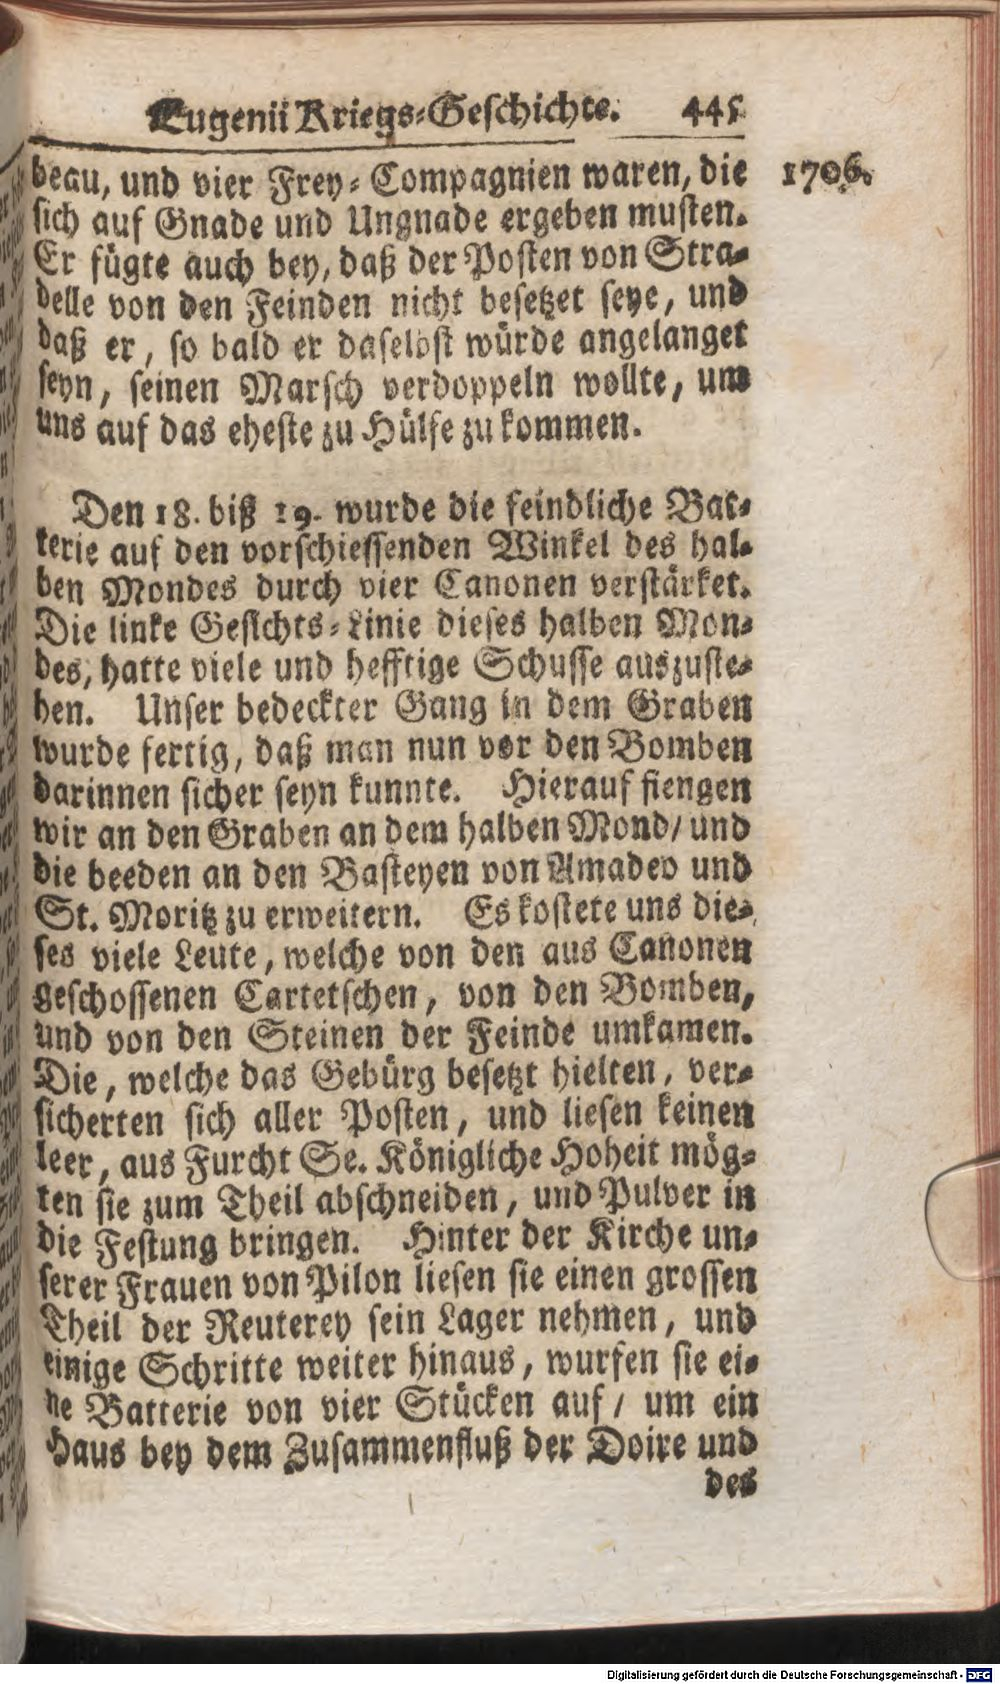 Eugenii Kriegs-Geschichte. 445
beau, und vier Frey-Compagnien waren, die 1706.
sich auf Gnade und Ungnade ergeben musten.
Er fügte auch bey, daß der Posten von Stra-
delle von den Feinden nicht besetzet seye, und
daß er, so bald er daselbst würde angelanget
seyn, seinen Marsch verdoppeln wollte, um
uns auf das eheste zu Hülfe zu kommen.
Den 18. biß 19. wurde die feindliche Bat-
terie auf den vorschiessenden Winkel des hal-
ben Mondes durch vier Canonen verstärket.
Die linke Gesichts-Linie dieses halben Mon-
des, hatte viele und hefftige Schusse auszuste-
hen. Unser bedeckter Gang in dem Graben
wurde fertig, daß man nun vor den Bomben
darinnen sicher seyn kunnte. Hierauf fiengen
wir an den Graben an dem halben Mond/ und
die beeden an den Basteyen von Amadeo und
St. Moritz zu erweitern. Es kostete uns die-
ses viele Leute, welche von den aus Canonen
geschossenen Cartetschen, von den Bomben,
und von den Steinen der Feinde umkamen.
Die, welche das Gebürg besetzt hielten, ver-
sicherten sich aller Posten, und liesen keinen
leer, aus Furcht Se. Königliche Hoheit mög-
ten sie zum Theil abschneiden, und Pulver in
die Festung bringen. Hinter der Kirche un-
serer Frauen von Pilon liesen sie einen grossen
Theil der Reuterey sein Lager nehmen, und
einige Schritte weiter hinaus, wurfen sie ei-
ne Batterie von vier Stücken auf/ um ein
Haus bey dem Zusammenfluß der Doire und
des
Digitalisierung gefördert durch die Deutsche Forschungsgemeinschaft - DFG